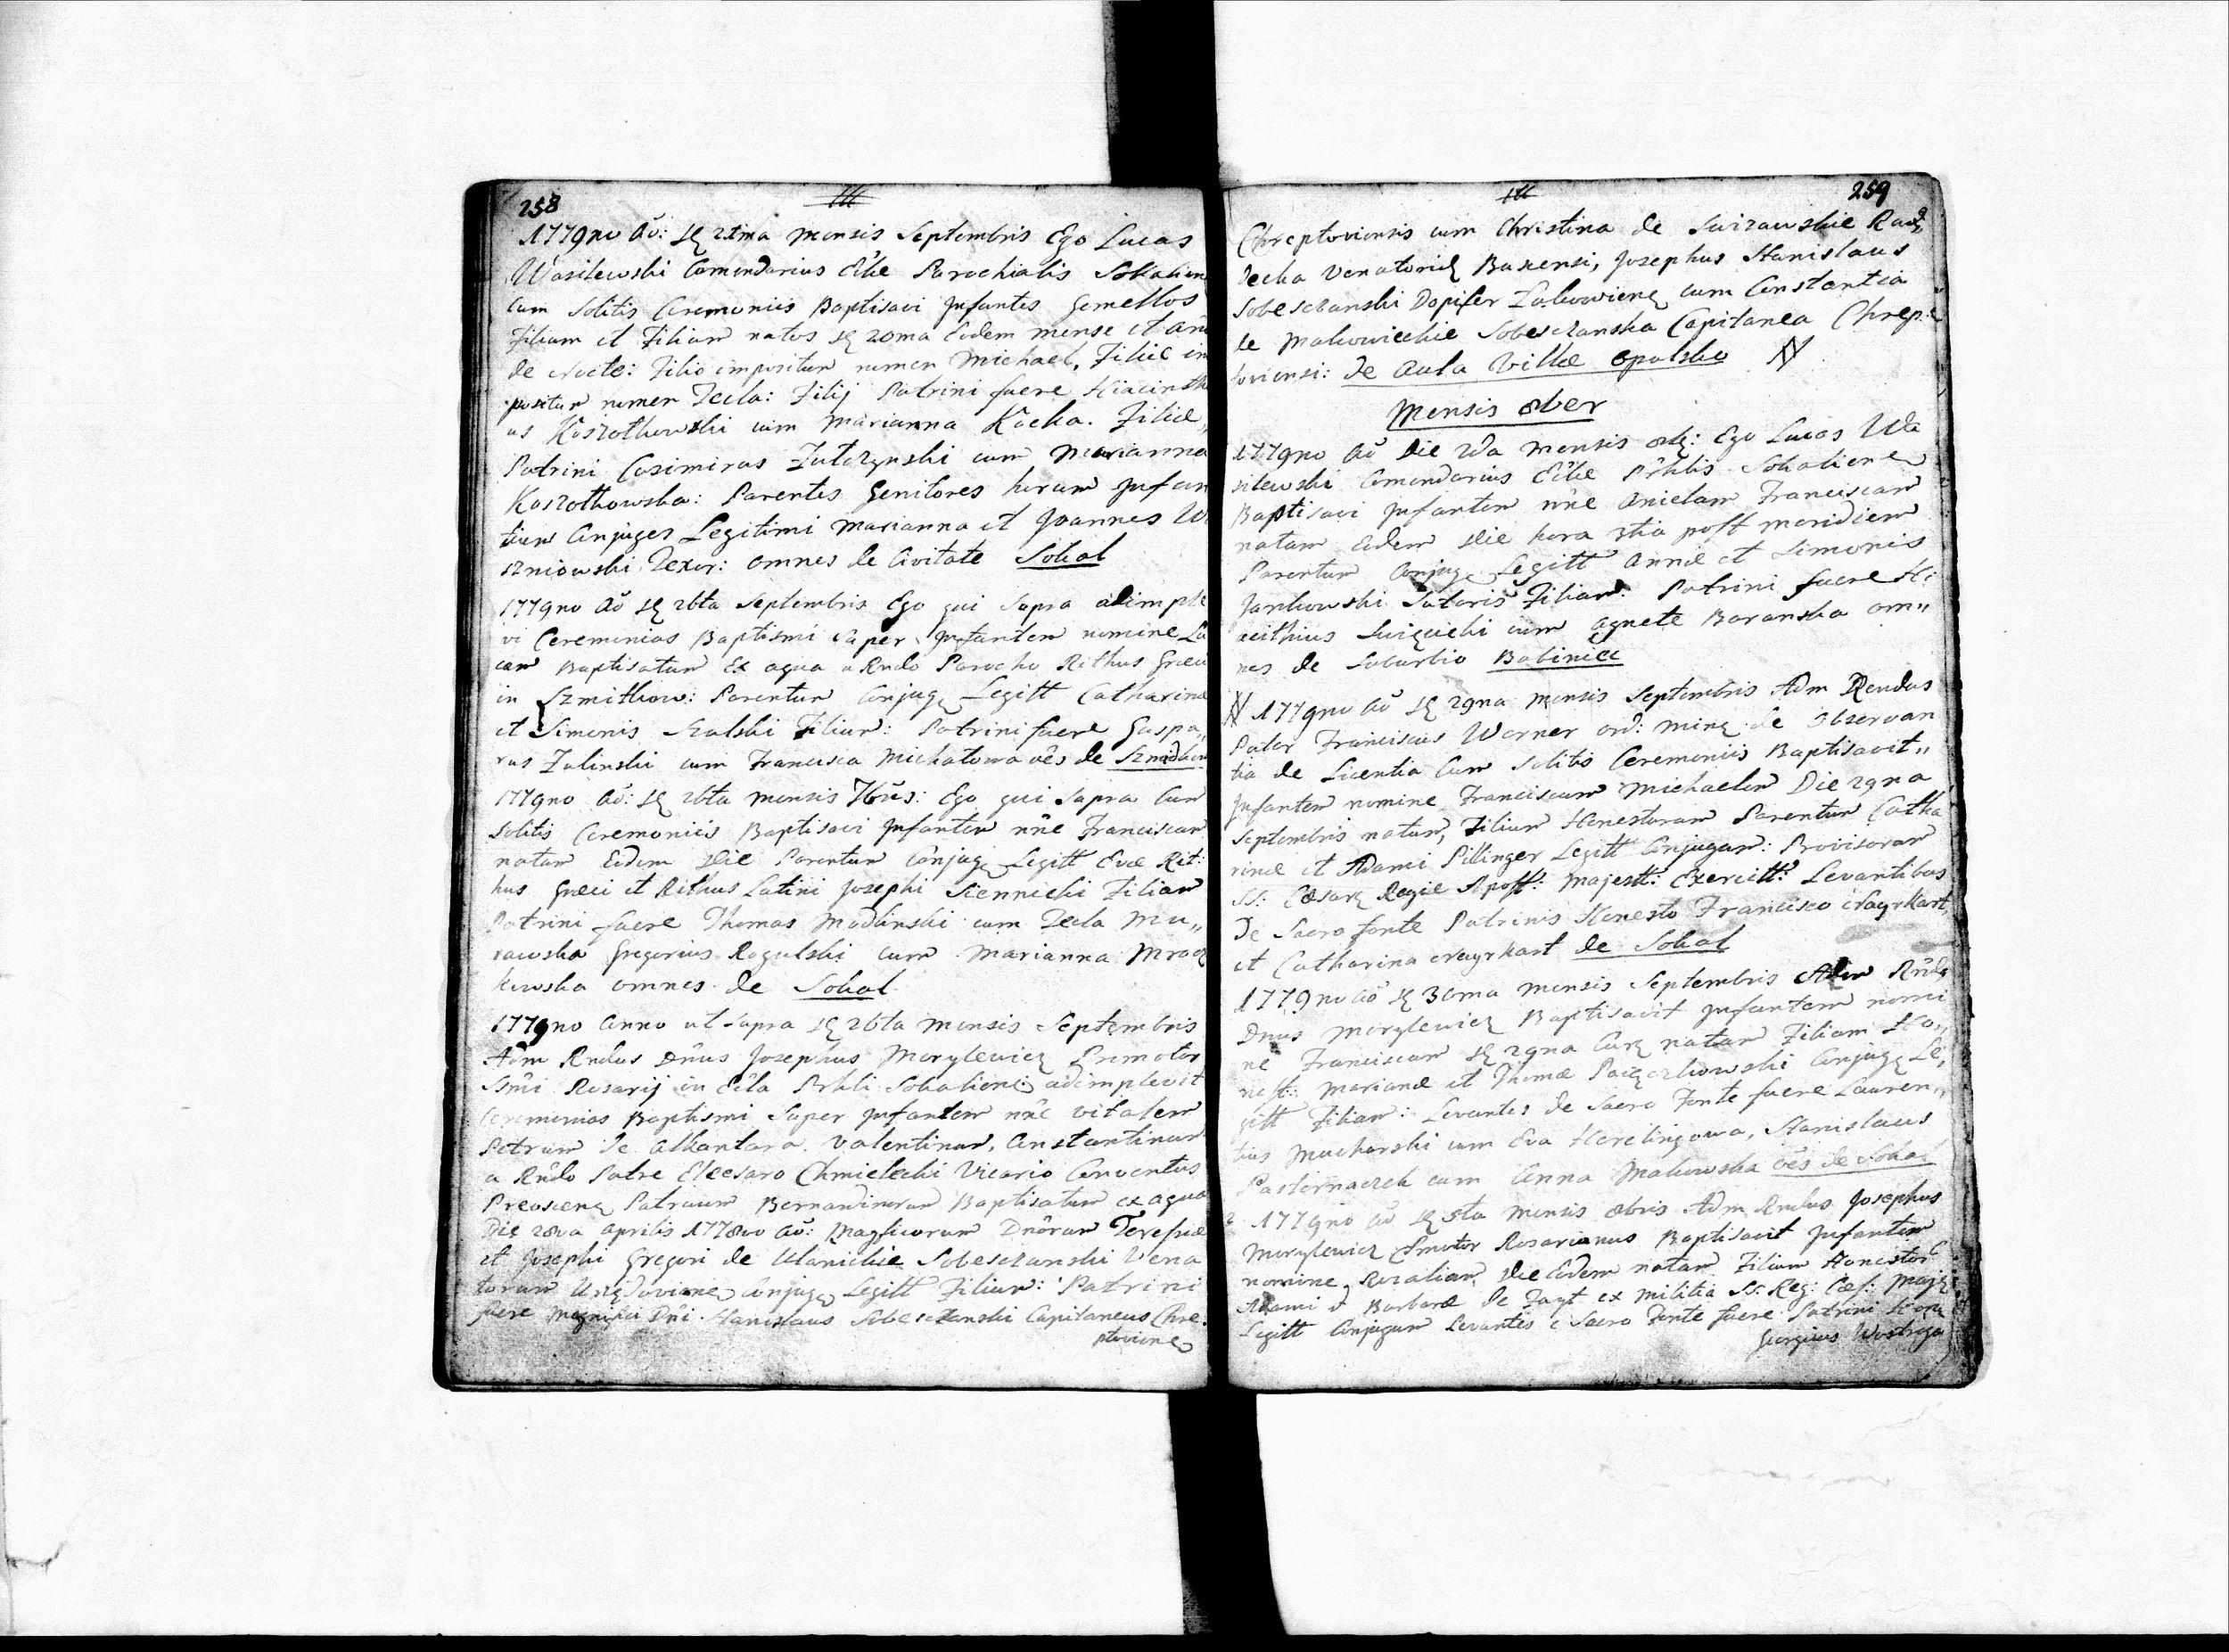 258
1779no aō: dę 21ma mensis Septembris Ego Lucas
Wasilewski Comendarius Ecłæ Parochialis Sokalien
cum Solitis Ceremoniis Baptisavi Jnfantes gemellos
Filium et Filiam natos dę 20ma Eodem mense et an
de Nocte: Filio impositum nomen Michael, Filiæ im
positum nomen Tecla: Filij Patrini fuere Hiacinth
us Koszothowski cum Marianna Kocka. Filiæ,
Patrini Casimirus Zutczynski cum Marianna
Koszothowska: Parentes Genitores horum Jnfan
tium Conjuges Legitimi Marianna et Joannes Wi
szniowski Textor: omnes de Civitate Sokal
1779no Aō dę 26ta Septembris Ego qui Supra adimple
vi Ceremonias Baptismi Super Jnfantem nomine Lu
cam Baptisatum Ex aqua a Rndo Parocho Rithus Græci
in Szmitkow: Parentum Conjugę Legitt Catharinæ
et Simonis Szalski Filium: Patrini fuere Gaspa„
rus Zalinski cum Francisca Michatowa oēs de Szmidkow
1779no Aō: dę 26ta mensis 7brīs: Ego qui Supra Cum
Solitis Ceremoniis Baptisavi Jnfantem nñe Franciscam
natam Eodem die Parentum Conjugę Legitt Evæ Rit:
hus Græci et Rithus Latini Josephi Siennicki Filiam
Patrini fuere Thomas Modlinski cum Tecla Mu„
rawska Gregorius Rogulski cum Marianna Mrocz
kowska omnes de Sokal
1779no Anno ut Supra dę 26ta mensis Septembris
Adm Rndus Dnūs Josephus Morylewicz Promotor
Ssmi Rosarij in Ecła Prhli Sokalienę adimplevit
Ceremonias Baptismi Super Jnfantem nñe Vitalem
Petrum de Alkantara, Valentinum, Constantinum
a Rndo Patre Eleesaro Chmielecki Vicario Conventus
Preosienę Patrum Bernardinorum Baptisatum ex aqua
Die 28va Aprilis 1778vo aō: Magficorum Dnōrum Teresiæ
et Josephi Gregori de Ulanickie Sobeszczanski Vena
torum Urzędovienę Conjugę Legitt Filium: Patrini
fuere Magnifici Dni Stanislaus Sobeszczanski Capitaneus Chre„
ptovienę
259
Chreptoviensis cum Christina de Swirawskie Radz
decka Venatorią Buscensi, Josephus Stanislaus
Sobesczanski Dapifer Lukowienę cum Constantia
de Makowieckie Sobesczanska Capitanea Chrep„
toviensi: de Aula Villæ Opulsko
Mensis 8ber
1779no Aō die 2da mensis 8brę: Ego Lucas Wa
silewski Comendarius Ecłæ Prhlis Sokalienę
Baptisavi Jnfantem nñe Anielam Franciscam
natam Eodem die hora 3tia post meridiem
Parentum Conjugę Legitt Annæ et Simonis
Jankowski Sutoris Filiam: Patrini fuere Hi
acinthus Swięcicki cum Agnete Baranska om„
nes de Suburbio Babiniec
1779no Aō dę 29na mensis Septembris Adm Rendus
Pater Franciscus Werner ord: Minę: de Observan
tia de Licentia Cum Solitis Ceremoniis Baptisavit„
Jnfantem nomine Franciscum Michaelem Die 29na
Septembris natum, Filium Honestorum Parentum Catha
rinæ et Adami Pillinger Legitt Conjugum: Provisorum
SS: Cæsarę Regiæ Apost: Majestt: Exercitt: Levantibus
De Sacro fonte Patrinis Honesto Francisco Nayrkart
et Catharina Nayrkart de Sokal
1779no aō dę 30ma mensis Septembris Adm Rndę
Dnus Morylewicz Baptisavit Jnfantem nomi
ne Franciscam dę 29na Curę natam Filiam Ho„
nest: Marianæ et Thomæ Conjugę Le„
gitt Filiam: Levantes de Sacro Fonte fuere Lauren„
tius Mucharski cum Eva Herelingowa, Stanislaus
Pasternaczek cum Anna Makowska oēs de Sokal
1779no aō dę 5ta mensis 8bris Adm Rndus Josephus
Morylewicz Pmotor Rosarianus Baptisavit Jnfantem
nomine Rozaliam, die Eodem natam Filiam Honestor
Adami et Barbaræ de Zayt ex militia SS: Reg: Cæs: Maję
Legitt Conjugum Levantes e Sacro Fonte fuere Patrini Honę
Georgius Wostroga